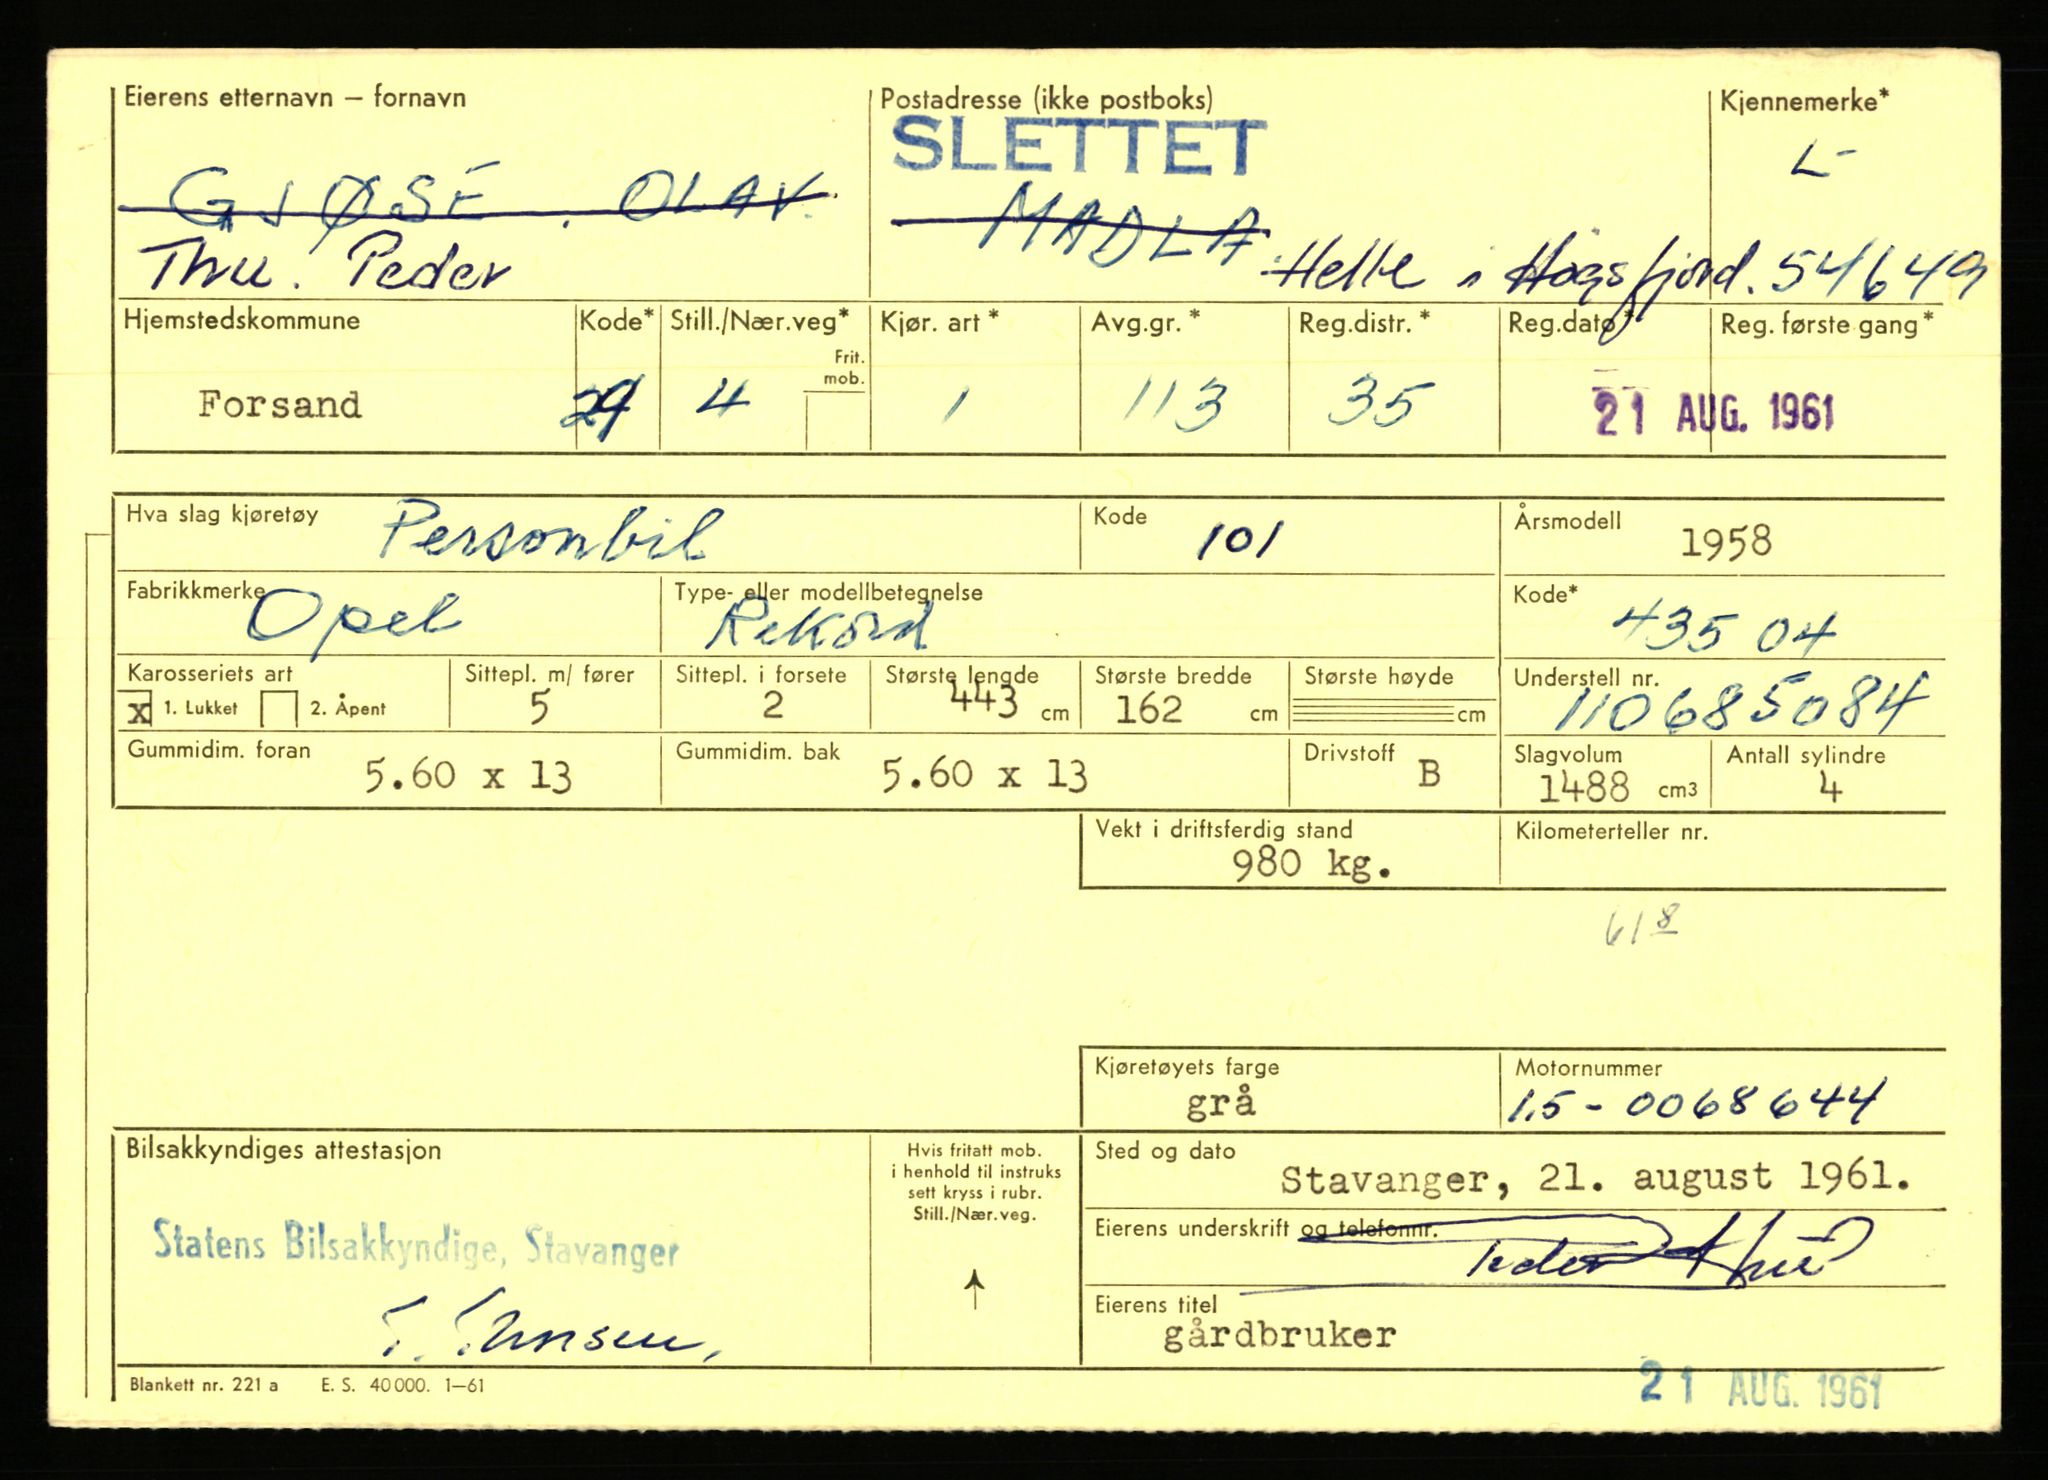 Eierens etternavn – fornavn
Postadresse (ikke postboks)
Kjennemerke*
SLETTET
L-
GJØSE, OLAV.
MADLA
Thu. Peder
Helle i Høgsfjord.
54649
Hjemstedskommune
Kode*
Still./Nær.veg*
Frit. mob.
Kjør. art*
Avg.gr.*
Reg.distr.*
Reg.dato*
Reg. første gang*
Forsand
29
4
1
113
35
21 AUG. 1961
Hva slag kjøretøy
Personbil
Kode
101
Årsmodell
1958
Fabrikkmerke
Opel
Type- eller modellbetegnelse
Rekord
Kode*
435 04
Karosseriets art
x 1. Lukket 2. Åpent
Sittepl. m/ fører
5
Sittepl. i forsete
2
Største lengde
443 cm
Største bredde
162 cm
Største høyde
cm
Understell nr.
110685084
Gummidim. foran
5.60 x 13
Gummidim. bak
5.60 x 13
Drivstoff
B
Slagvolum
1488 cm3
Antall sylindre
4
Vekt i driftsferdig stand
980 kg.
Kilometerteller nr.
61 8
Kjøretøyets farge
grå
Motornummer
1,5 - 0068644
Bilsakkyndiges attestasjon
Statens Bilsakkyndige, Stavanger
Hvis fritatt mob.
i henhold til instruks
sett kryss i rubr.
Still./Nær.veg.
Sted og dato
Stavanger, 21. august 1961.
Eierens underskrift og telefonnr.
Peder Thu
Eierens titel
gårdbruker
Blankett nr. 221 a E. S. 40 000. 1–61
21 AUG. 1961